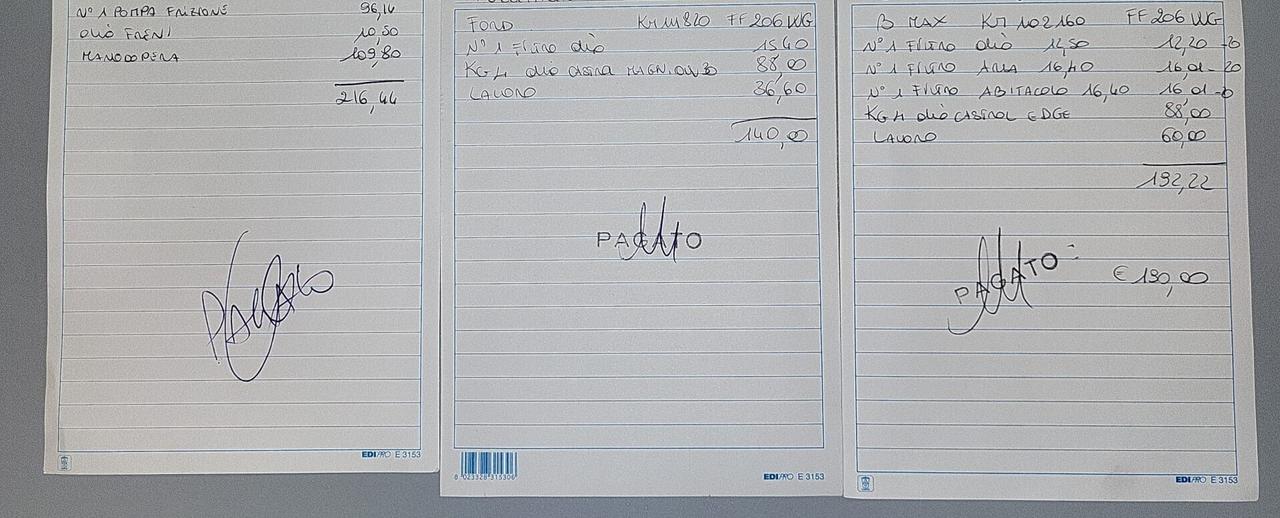 N° 1 POMPA FRIZIONE 96,14
OLIO FRENI 10,50
MANODOPERA 109,80
216,44
PAGATO
EDIPRO E 3153
FORD KM 111820 FF 206 WG
N° 1 FILTRO OLIO 15,40
KG 4 OLIO CASTROL MAGN. 0W30 88,00
LAVORO 36,60
140,00
PAGATO
8 023328 315306
EDIPRO E 3153
B MAX KM 102160 FF 206 WG
N° 1 FILTRO OLIO 12,50 12,20 -20
N° 1 FILTRO ARIA 16,40 16,01 - 20
N° 1 FILTRO ABITACOLO 16,40 16,01 -20
KG 4 OLIO CASTROL EDGE 88,00
LAVORO 60,00
192,22
PAGATO: € 190,00
EDIPRO E 3153